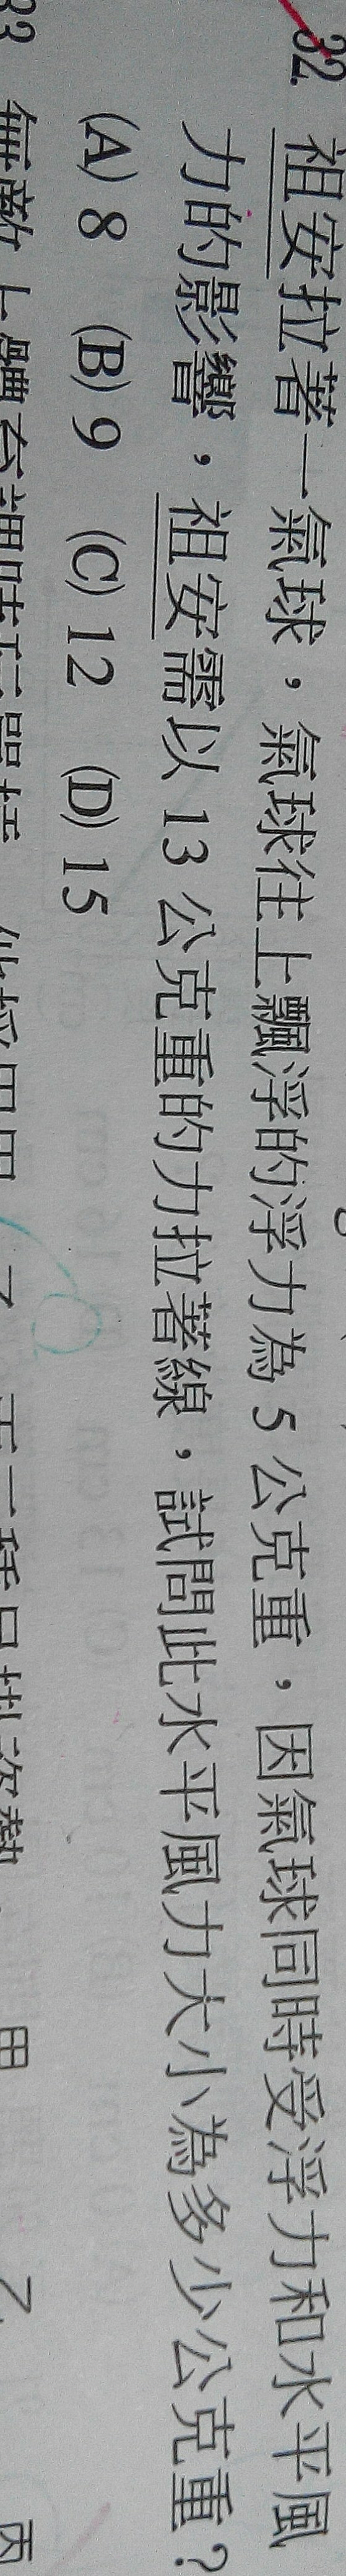 32. 祖安拉著一氣球，氣球往上飄浮的浮力為 5 公克重，因氣球同時受浮力和水平風
力的影響，祖安需以 13 公克重的力拉著線，試問此水平風力大小為多少公克重？
(A) 8 (B) 9 (C) 12 (D) 15
33